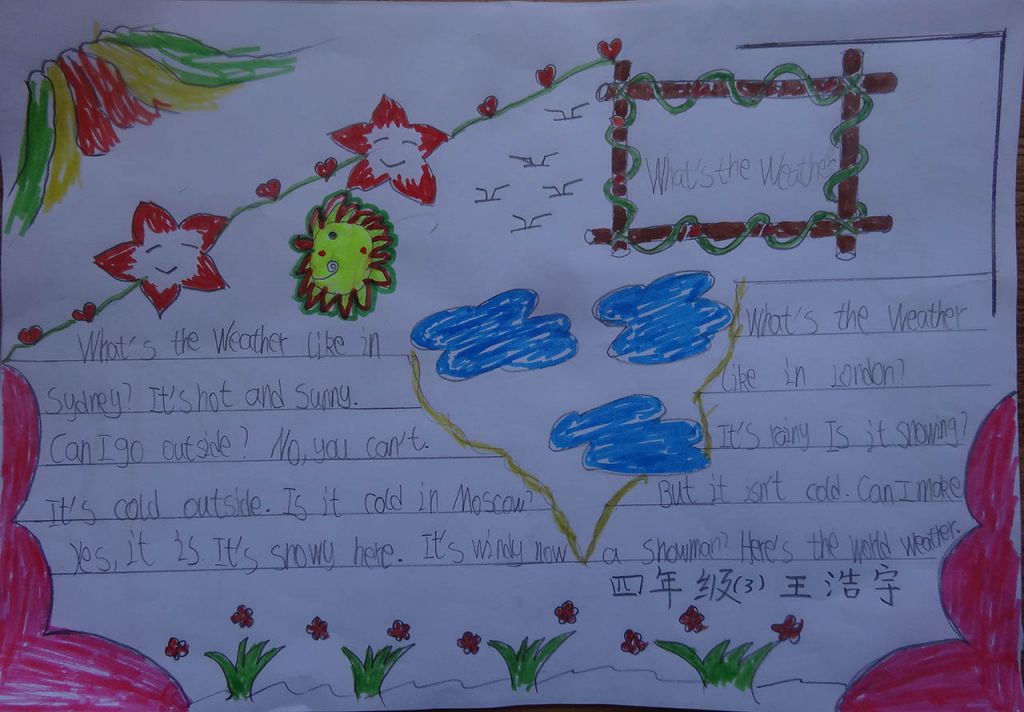 What's the Weather
What's the Weather Like in
Sydney? It's hot and sunny.
Can I go outside? No, you can't.
It's cold outside. Is it cold in Moscow?
Yes, it is. It's snowy here. It's windy now
What's the Weather
Like in London?
It's rainy Is it snowing?
But it isn't cold. Can I make
a snowman? Here's the world weather.
四年级(3) 王浩宇